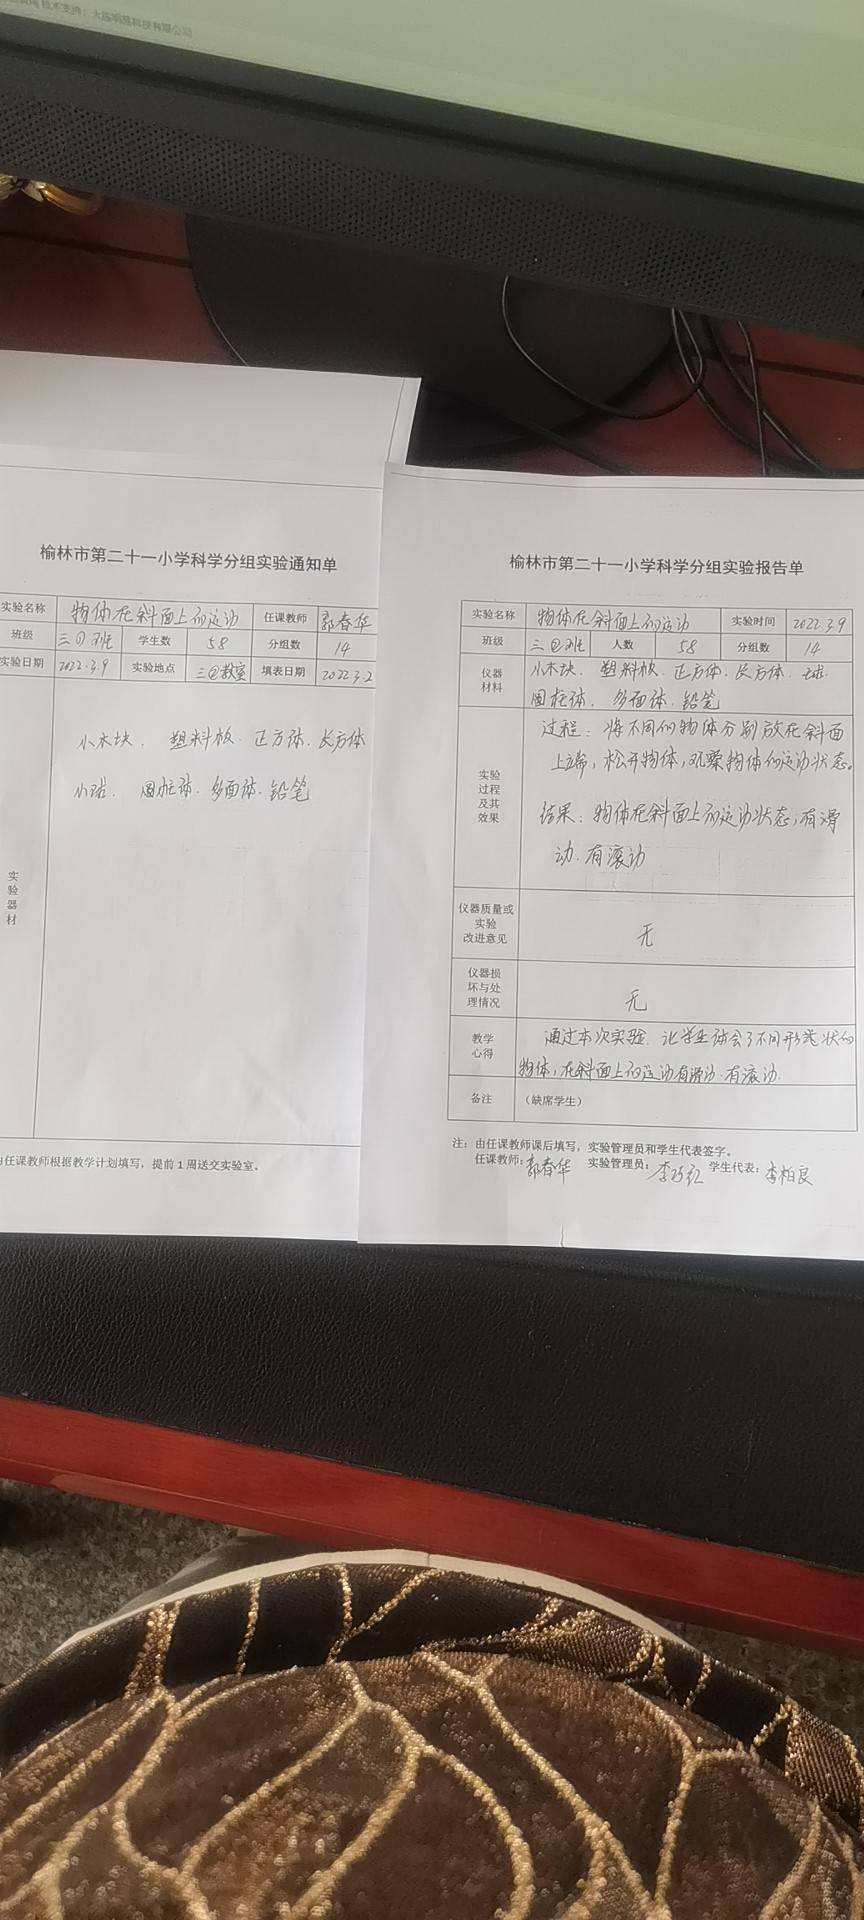 技术支持：大连明思科技有限公司
榆林市第二十一小学科学分组实验通知单
实验名称 物体在斜面上的运动 任课教师 郭春华
班级 三 班 学生数 58 分组数 14
实验日期 2022.3.9 实验地点 三 教室 填表日期 2022.3.2
小木块、塑料板、正方体、长方体
小球、圆柱体、多面体、铅笔
实
验
器
材
由任课教师根据教学计划填写，提前1周送交实验室。
榆林市第二十一小学科学分组实验报告单
实验名称 物体在斜面上的运动 实验时间 2022.3.9
班级 三 班 人数 58 分组数 14
仪器
材料
小木块、塑料板、正方体、长方体、球
圆柱体、多面体、铅笔
实验
过程
及其
效果
过程：将不同的物体分别放在斜面
上端，松开物体，观察物体的运动状态。
结果：物体在斜面上的运动状态，有滑
动、有滚动
仪器质量或
实验
改进意见
无
仪器损
坏与处
理情况
无
教学
心得
通过本次实验、让学生体会了不同形状的
物体，在斜面上的运动有滑动、有滚动.
备注 （缺席学生）
注：由任课教师课后填写，实验管理员和学生代表签字。
任课教师：郭春华 实验管理员： 学生代表：李柏良